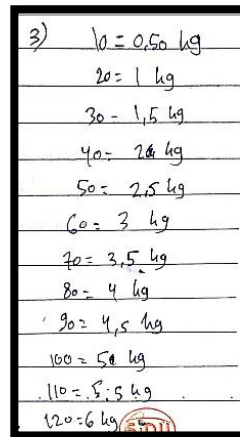 3) 10 = 0,50 kg
20 = 1 kg
30 = 1,5 kg
40 = 2 kg
50 = 2,5 kg
60 = 3 kg
70 = 3,5 kg
80 = 4 kg
90 = 4,5 kg
100 = 5 kg
110 = 5,5 kg
120 = 6 kg